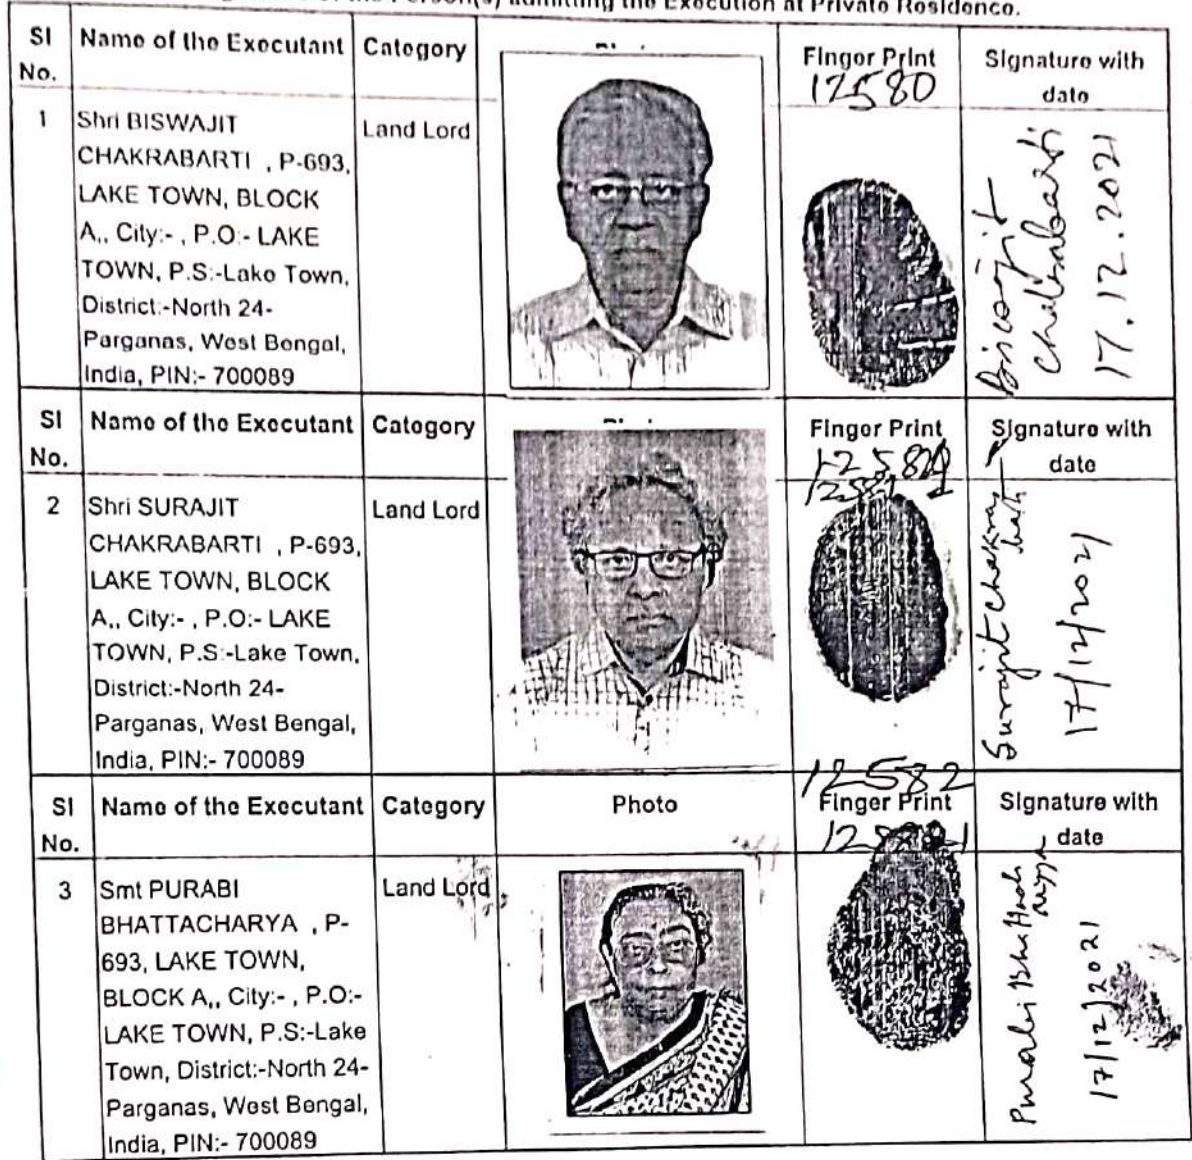 the Person(s) admitting the Execution at Private Residence.
Sl No. Name of the Executant Category Finger Print Signature with date
12580
1 Shri BISWAJIT Land Lord
CHAKRABARTI , P-693,
LAKE TOWN, BLOCK
A,, City:- , P.O:- LAKE
TOWN, P.S:-Lake Town,
District:-North 24-
Parganas, West Bengal,
India, PIN:- 700089
Biswajit
Chakrabarti
17.12.2021
Sl No. Name of the Executant Category Finger Print Signature with date
2 Shri SURAJIT Land Lord
CHAKRABARTI , P-693,
LAKE TOWN, BLOCK
A,, City:- , P.O:- LAKE
TOWN, P.S:-Lake Town,
District:-North 24-
Parganas, West Bengal,
India, PIN:- 700089
Surajit Chakra
barti
17/12/2021
12582
Sl No. Name of the Executant Category Photo Finger Print Signature with date
3 Smt PURABI Land Lord
BHATTACHARYA , P-
693, LAKE TOWN,
BLOCK A,, City:- , P.O:-
LAKE TOWN, P.S:-Lake
Town, District:-North 24-
Parganas, West Bengal,
India, PIN:- 700089
Purabi Bhattach
aryya
17/12/2021